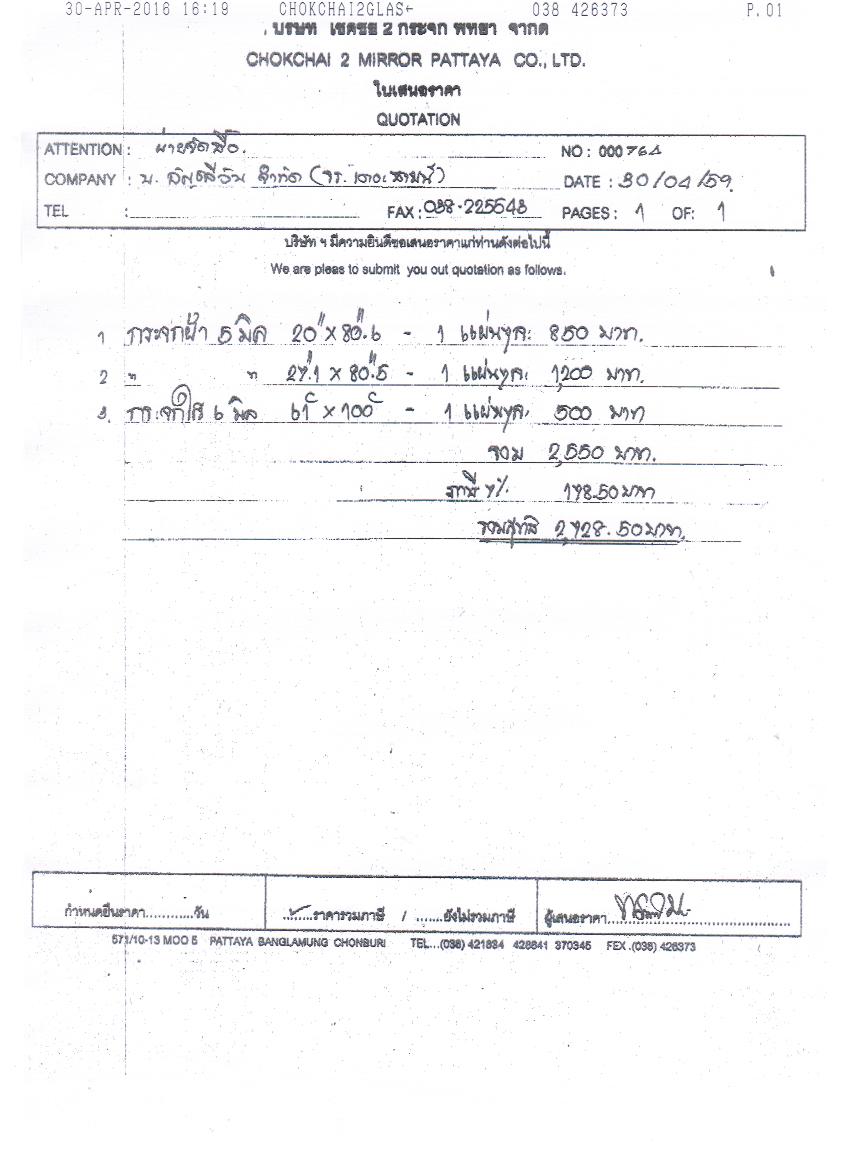 30-APR-2016 16:19 CHOKCHAI2GLAS← 038 426373 P.01
บริษัท โชคชัย 2 กระจก พัทยา จำกัด
CHOKCHAI 2 MIRROR PATTAYA CO., LTD.
ใบเสนอราคา
QUOTATION
ATTENTION : ฝ่ายจัดซื้อ. NO : 000764
COMPANY : บ. จำกัด DATE : 30/04/59.
TEL : FAX : 038-225543 PAGES : 1 OF: 1
บริษัท ฯ มีความยินดีขอเสนอราคาแก่ท่านดังต่อไปนี้
We are pleas to submit you out quotation as follows.
1 กระจกฝ้า 5 มิล 20" x 80".6 - 1 แผ่นๆละ 850 บาท.
2 " " 27".1 x 80".5 - 1 แผ่นๆละ 1,200 บาท.
3. กระจกใส 6 มิล 61 x 100 - 1 แผ่นๆละ 500 บาท
รวม 2,550 บาท.
ภาษี 7%. 178.50 บาท
รวมสุทธิ 2,728.50 บาท.
กำหนดยืนราคา............วัน
......ราคารวมภาษี / .......ยังไม่รวมภาษี
ผู้เสนอราคา
571/10-13 MOO 5 PATTAYA BANGLAMUNG CHONBURI TEL...(038) 421834 428841 370345 FEX .(038) 426373